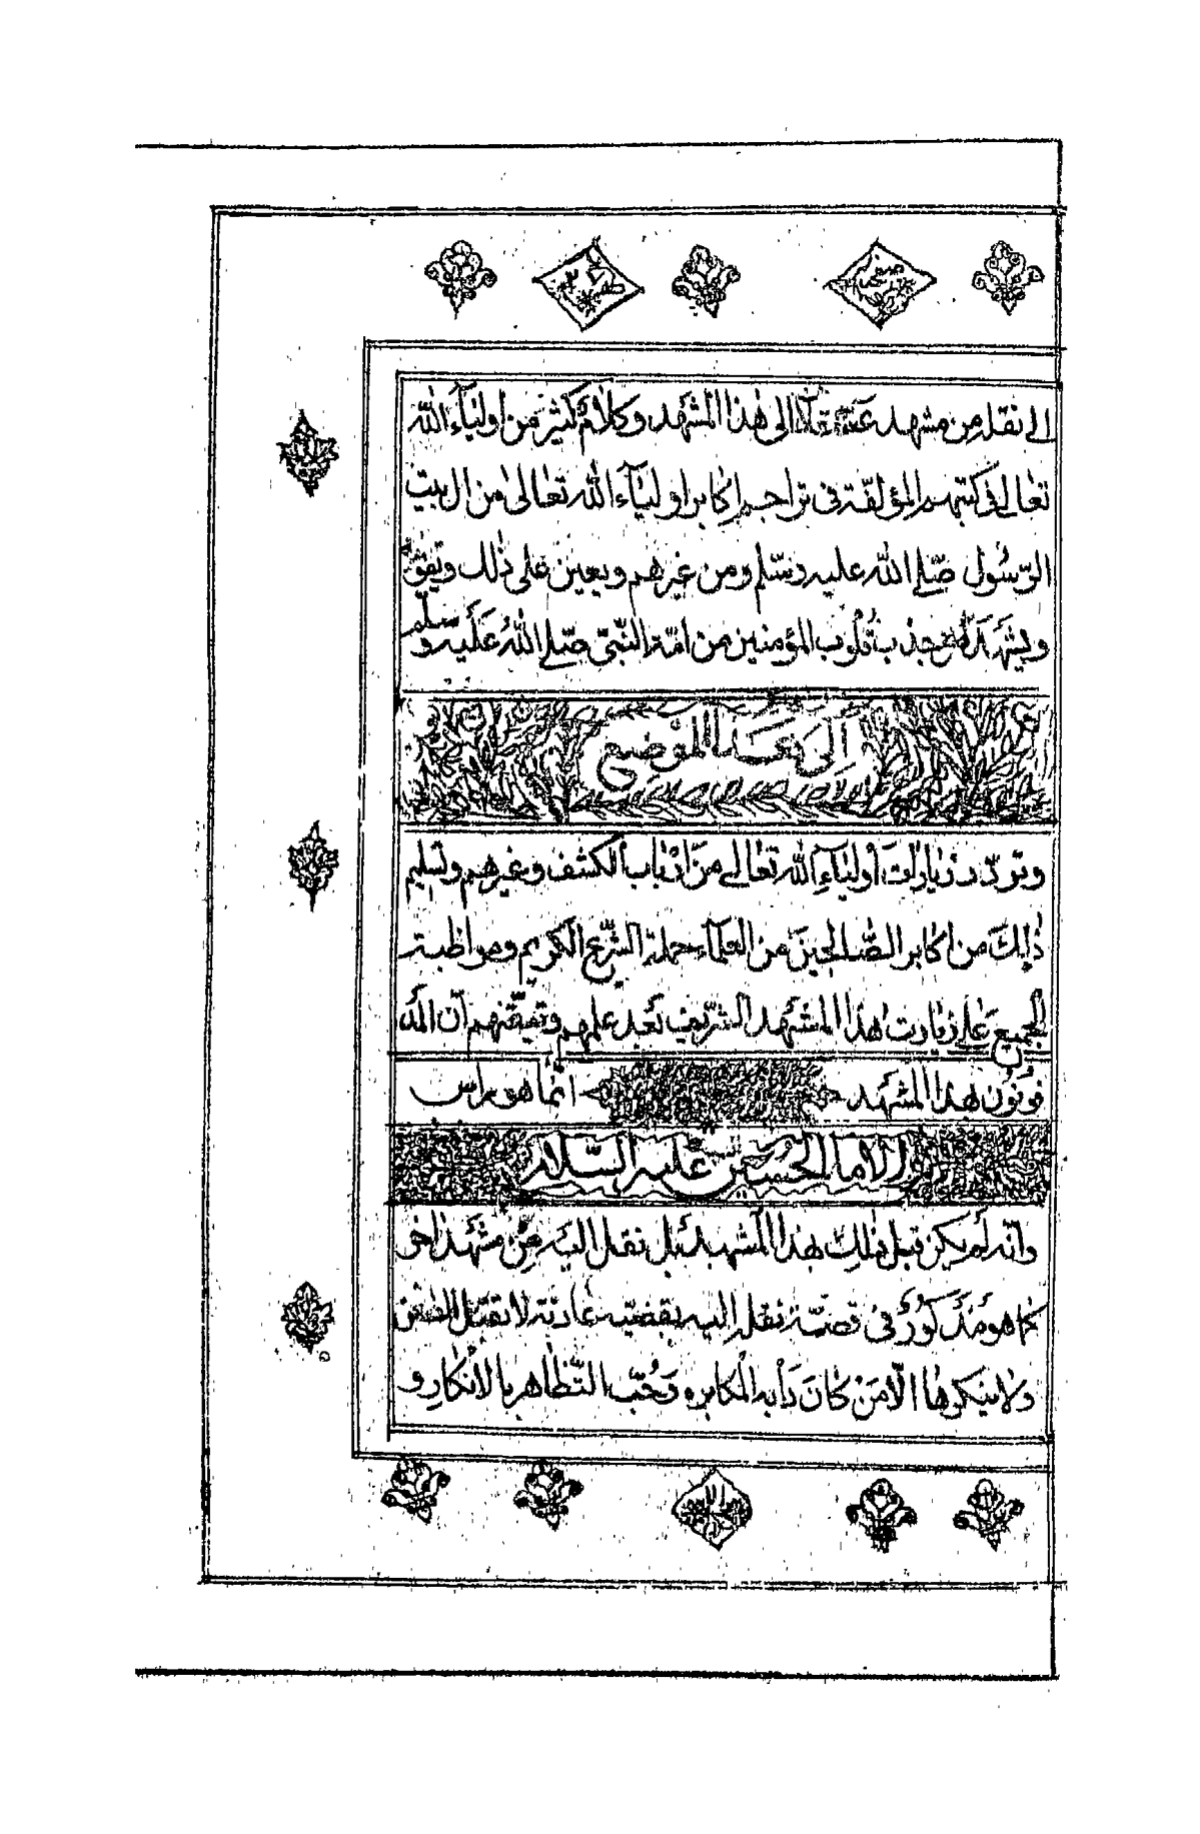 الى نقله من مشهد الى هذا المشهد وكلام كثير من اولياء الله
تعالى فى كتبهم المؤلفة فى تراجم اكابر اولياء الله تعالى من ال بيت
الرسول صلى الله عليه وسلم ومن غيرهم ويعين على ذلك
ويشهد جذب قلوب المؤمنين من امة النبى صلى الله عليه وسلم
الى هذا الموضع
وتردد زيارات اولياء الله تعالى من ارباب الكشف وغيرهم وتسليم
ذلك من اكابر الصالحين من العلماء حملة الشرع الكريم ومواظبة
الجميع على زيارت هذا المشهد الشريف بعد علمهم وتيقنهم ان المد
فون بهذا المشهد انما هو راس
الامام الحسين عليه السلام
وانه لم يكن قبل ذلك بهذا المشهد بل نقل اليه من مشهد اخر
كما هو مذكور فى قصة نقله اليه بقضية عادية لا تقبل
ولا ينكرها الا من كان دأبه المكابره وحب التظاهر بالانكار و